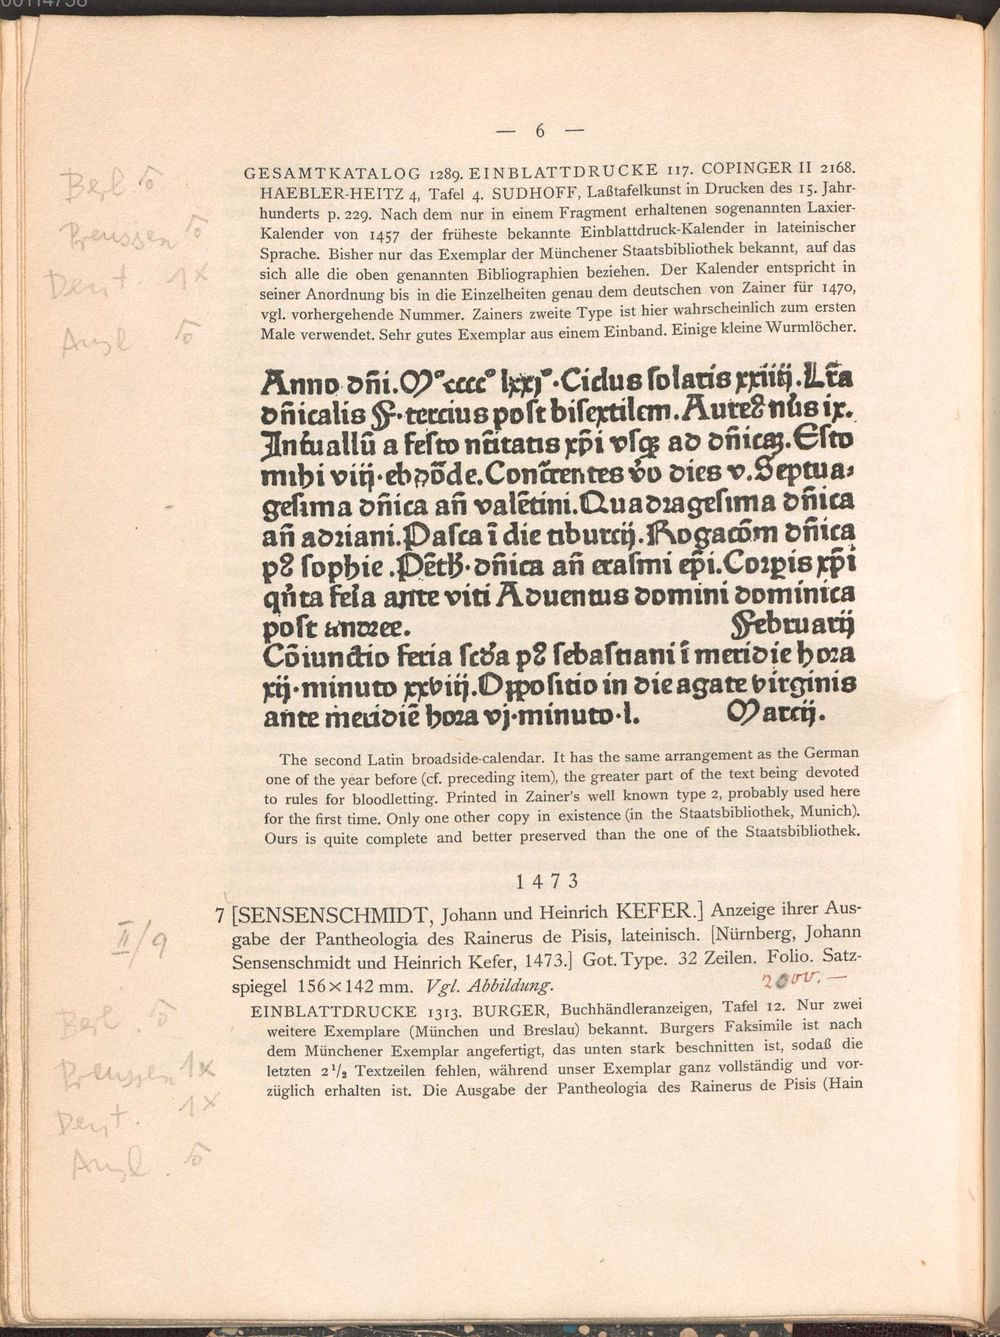 00114758
— 6 —
GESAMTKATALOG 1289. EINBLATTDRUCKE 117. COPINGER II 2168.
HAEBLER-HEITZ 4, Tafel 4. SUDHOFF, Laßtafelkunst in Drucken des 15. Jahr-
hunderts p. 229. Nach dem nur in einem Fragment erhaltenen sogenannten Laxier-
Kalender von 1457 der früheste bekannte Einblattdruck-Kalender in lateinischer
Sprache. Bisher nur das Exemplar der Münchener Staatsbibliothek bekannt, auf das
sich alle die oben genannten Bibliographien beziehen. Der Kalender entspricht in
seiner Anordnung bis in die Einzelheiten genau dem deutschen von Zainer für 1470,
vgl. vorhergehende Nummer. Zainers zweite Type ist hier wahrscheinlich zum ersten
Male verwendet. Sehr gutes Exemplar aus einem Einband. Einige kleine Wurmlöcher.
Berl
Preussen
Deut. 1x
Angl.
Anno dñi. M°cccc° lxxj°. Ciclus solaris xxiiij. Lr̃a
dñicalis F. tercius post bisextilem. Aureꝰ nũs ix.
Int̃uallũ a festo nãtitatis xp̃i vsqꝫ ad dñicaꝫ. Esto
mihi viij. ebdõde. Concr̃entes v̊o dies v. Septua-
gesima dñica añ valẽtini. Quadragesima dñica
añ adriani. Pasca ĩ die tiburcij. Rogacõm dñica
pꝰ sophie. Pẽth. dñica añ erasmi ep̃i. Corpis xp̃i
qñta feĩa ante viti Aduentus domini dominica
post andree. Februarij
Cõiunctio feria scd̃a pꝰ sebastiani ĩ meridie hora
xij. minuto xxviij. Oppositio in die agate virginis
ante meridiẽ hora vj. minuto. l. Marcij.
The second Latin broadside-calendar. It has the same arrangement as the German
one of the year before (cf. preceding item), the greater part of the text being devoted
to rules for bloodletting. Printed in Zainer's well known type 2, probably used here
for the first time. Only one other copy in existence (in the Staatsbibliothek, Munich).
Ours is quite complete and better preserved than the one of the Staatsbibliothek.
1473
7 [SENSENSCHMIDT, Johann und Heinrich KEFER.] Anzeige ihrer Aus-
gabe der Pantheologia des Rainerus de Pisis, lateinisch. [Nürnberg, Johann
Sensenschmidt und Heinrich Kefer, 1473.] Got. Type. 32 Zeilen. Folio. Satz-
spiegel 156×142 mm. Vgl. Abbildung.
2000.—
II/9
EINBLATTDRUCKE 1313. BURGER, Buchhändleranzeigen, Tafel 12. Nur zwei
weitere Exemplare (München und Breslau) bekannt. Burgers Faksimile ist nach
dem Münchener Exemplar angefertigt, das unten stark beschnitten ist, sodaß die
letzten 2 1/2 Textzeilen fehlen, während unser Exemplar ganz vollständig und vor-
züglich erhalten ist. Die Ausgabe der Pantheologia des Rainerus de Pisis (Hain
Berl.
Preussen 1x
Deut. 1x
Angl.